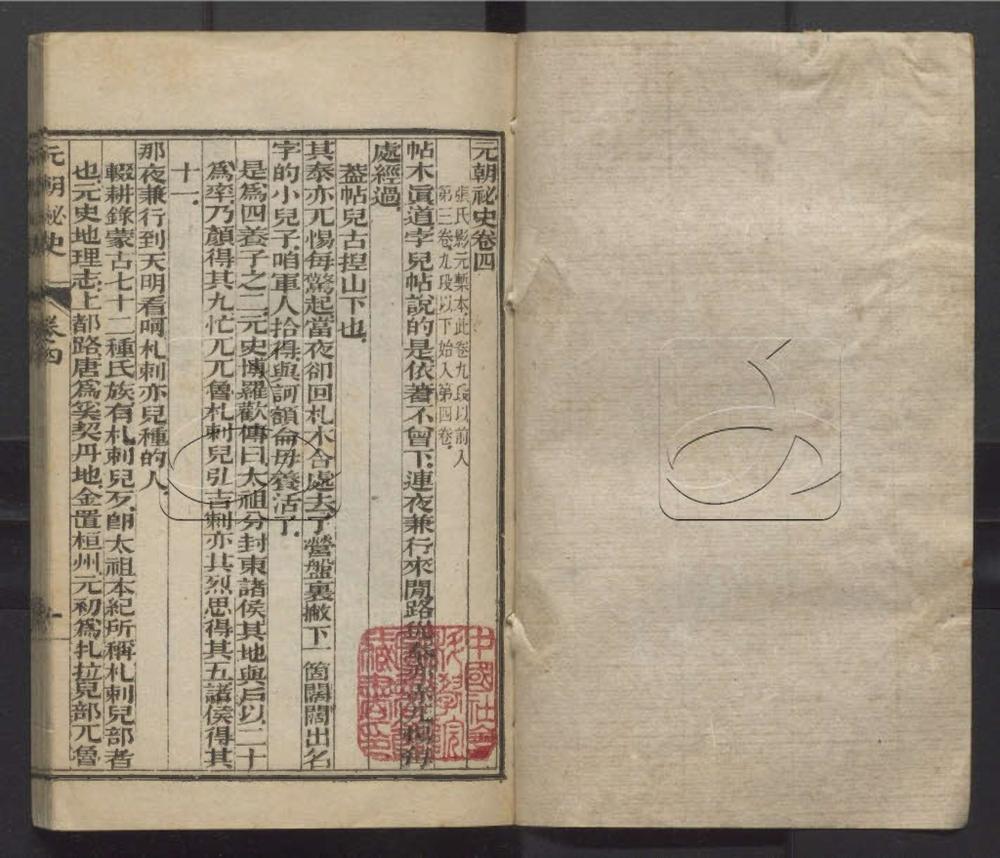 元朝祕史卷四
張氏影元槧本此卷九段以前入
第三卷九段以下始入第四卷
帖木真道孛兒帖說的是依著不曾下連夜兼行來間路從泰亦赤兀惕每
處經過
蓋帖兒古捏山下也
其泰亦兀惕每驚起當夜卻回札木合處去了營盤裏撇下一箇闊闊出名
字的小兒子咱軍人拾得與訶額侖母養活了
是爲四養子之二元史博羅歡傳曰太祖分封東諸侯其地與戶以二十
爲率乃顏得其九忙兀兀魯札剌兒弘吉剌亦其烈思得其五諸侯得其
十一
那夜兼行到天明看呵札剌亦兒種的人
輟耕錄蒙古七十二種氏族有札剌兒歹卽太祖本紀所稱札剌兒部者
也元史地理志上都路唐爲奚契丹地金置桓州元初爲扎拉兒部兀魯
元朝祕史 卷四 一
中國社會
科學院
藏書印